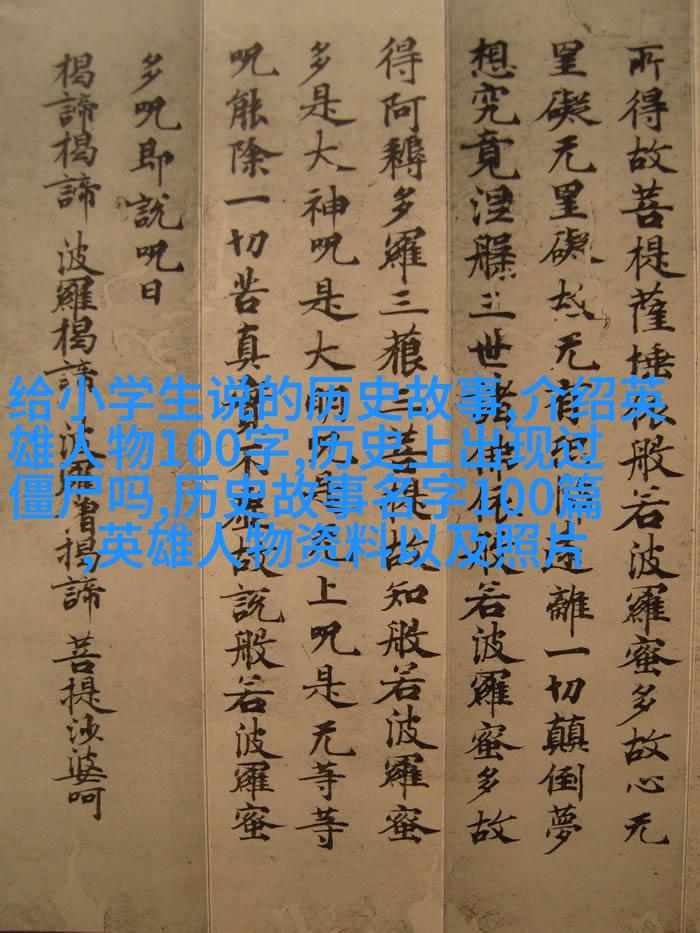 所得故菩提薩埵依般若波羅蜜多故心无
罣礙无罣礙故无有恐怖遠離一切顛倒夢
想究竟涅槃三世諸佛依般若波羅蜜多故
得阿耨多羅三藐三菩提故知般若波羅蜜
多是大神呪是大明呪是无上呪是无等等
呪能除一切苦真實不虛故說般若波羅蜜
多呪即說呪曰
揭諦揭諦 波羅揭諦 波羅僧揭諦 菩提沙婆呵
给小学生说的历史故事,介绍英
雄人物100字,历史上出现过
僵尸吗,历史故事名字100篇
,英雄人物资料以及照片